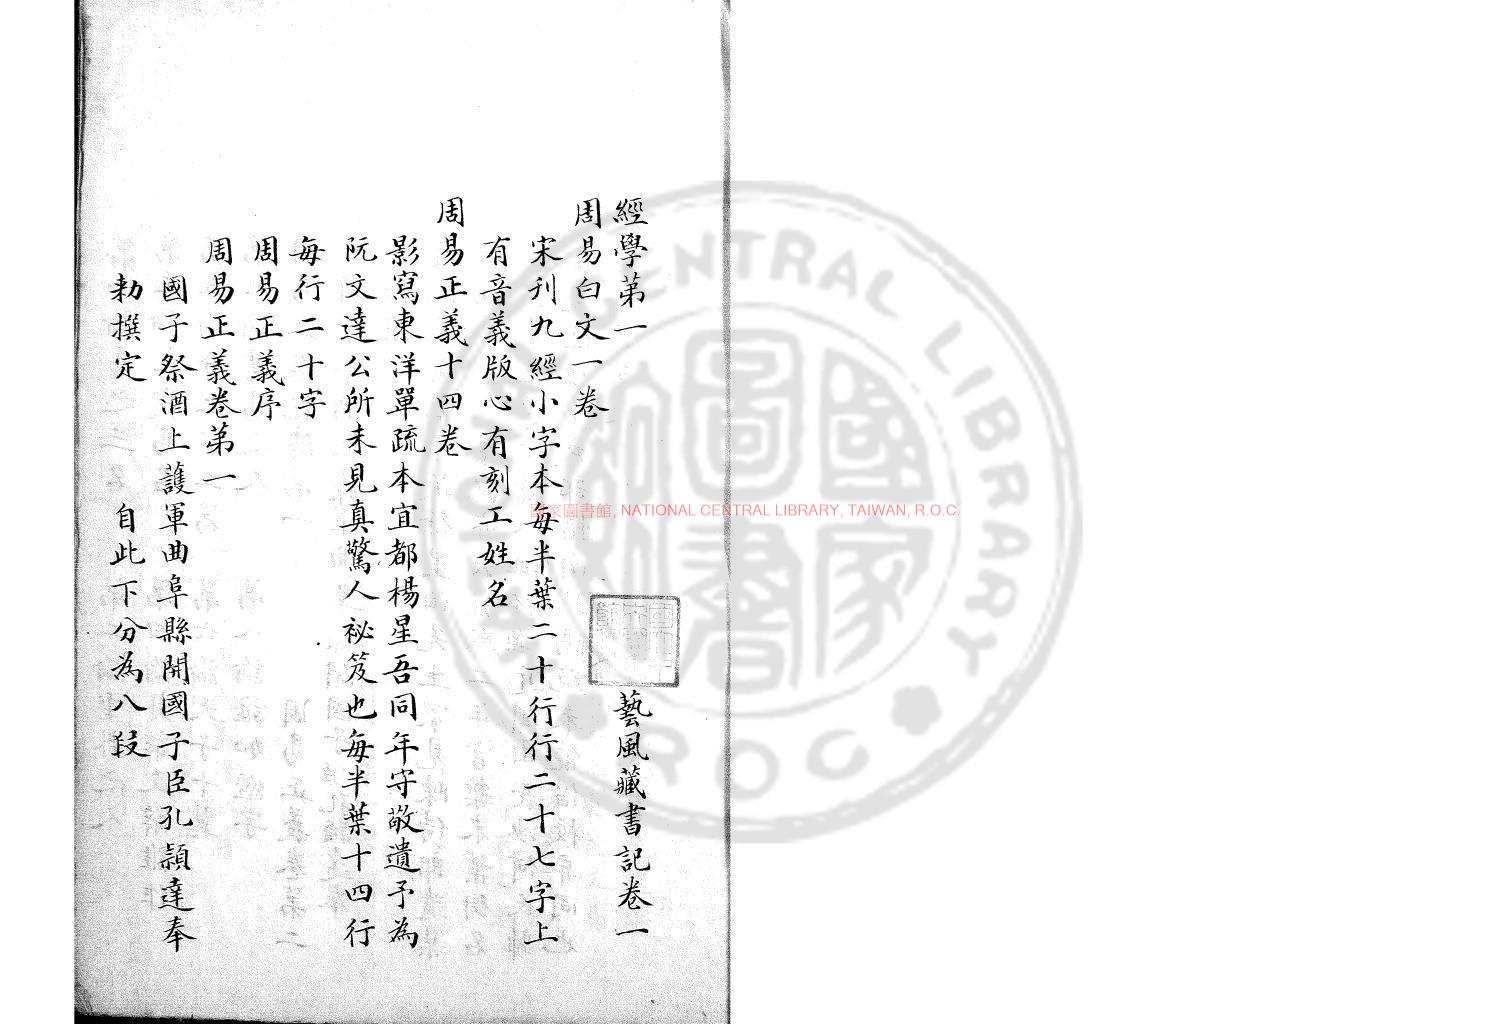 經學第一　藝風藏書記卷一
周易白文一卷
宋刊九經小字本每半葉二十行行二十七字上
有音義版心有刻工姓名
周易正義十四卷
影寫東洋單疏本宜都楊星吾同年守敬遺予為
阮文達公所未見真驚人祕笈也每半葉十四行
每行二十字
周易正義序
周易正義卷第一
國子祭酒上護軍曲阜縣開國子臣孔穎達奉
勅撰定　自此下分為八段
國家圖書館, NATIONAL CENTRAL LIBRARY, TAIWAN, R.O.C.
NATIONAL CENTRAL LIBRARY
ROC
國家圖書館